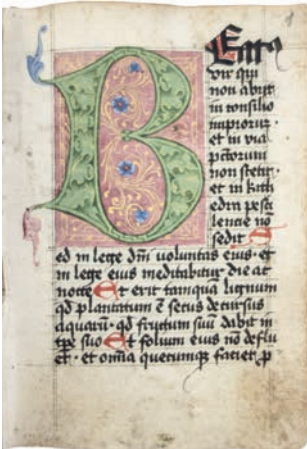 Beatꝰ
vir qui
non abijt
in consilio
impiorum·
et in via
pctorum
non stetit·
et in kath
edra pesti
lencie nō
sedit S
ed in lege dm̄ voluntas eius· et
in lege eius meditabitur die ac
nocte Et erit tamquā lignum
qd plantatum ē secus decursus
aquarū· qd fructum suū dabit in
tpe suo Et folium eius nō deflu
et· et omīa quecumqꝫ faciet p